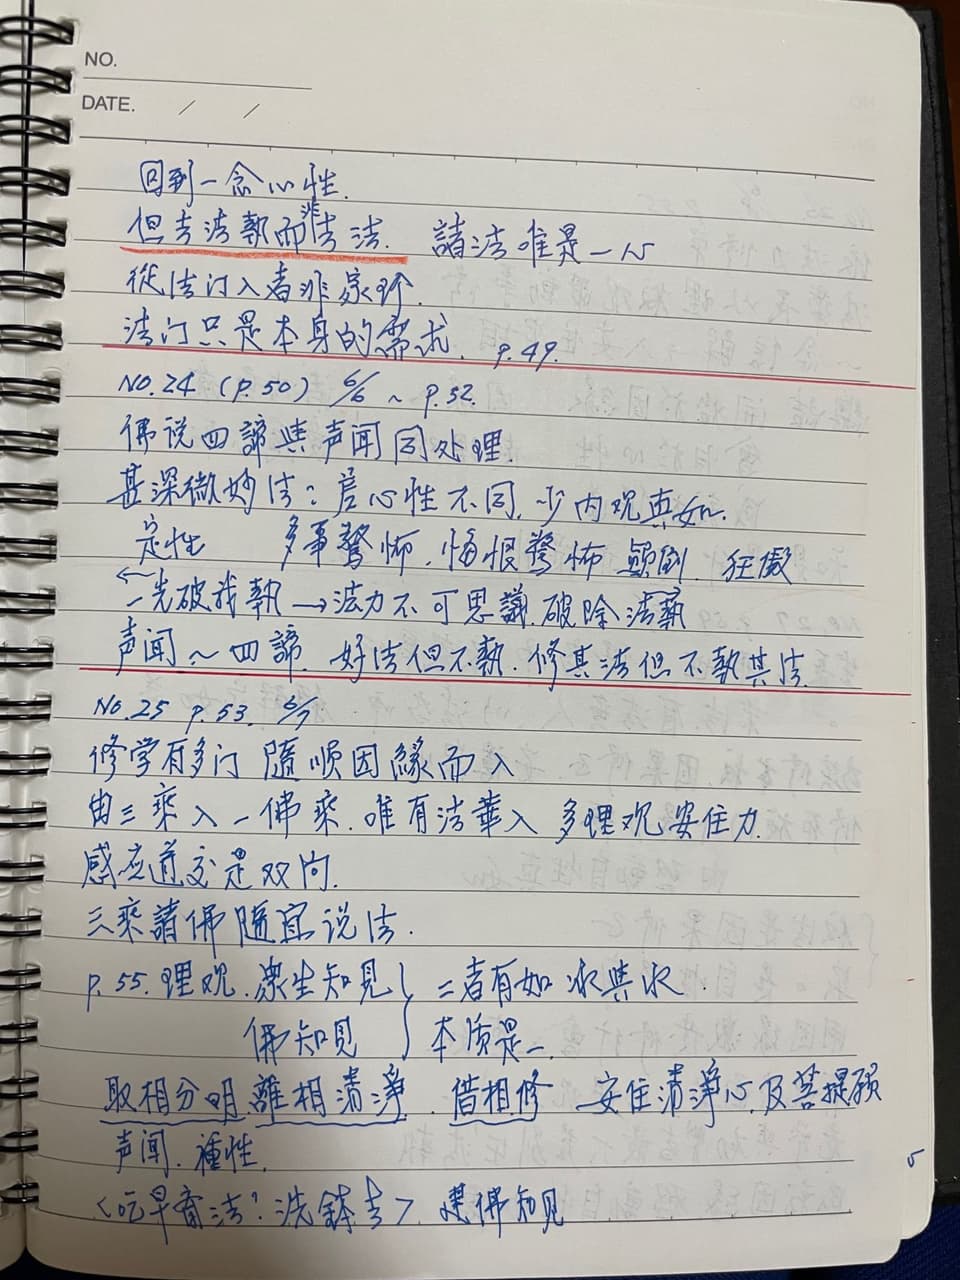 NO.
DATE. / /
回到一念心性.
但去法執而非去法. 諸法唯是一心
從法门入者非家珍.
法门只是本身的需求. p.49.
NO.24 (P.50) 6/6 ~ P.52.
佛说四諦與声闻同处理.
甚深微妙法: 心性不同, 少内观真如.
定性 多事驚怖. 悔恨驚怖 顛倒. 狂傲
先破我執→法力不可思議.破除法執
声闻~四諦. 好法但不執. 修其法但不執其法.
No.25 P.53. 6/7
修学有多门 隨順因緣而入
由三乘入一佛乘. 唯有法華入 多理观安住力.
感应道交是双向.
三乘諸佛隨宜说法.
P.55. 理观. 眾生知見 二者有如冰與水
佛知見 本质是一.
取相分明. 離相清淨. 借相修 安住清淨心.及菩提願
声闻. 種性.
<吃早齋法? 洗鉢去> 佛知見